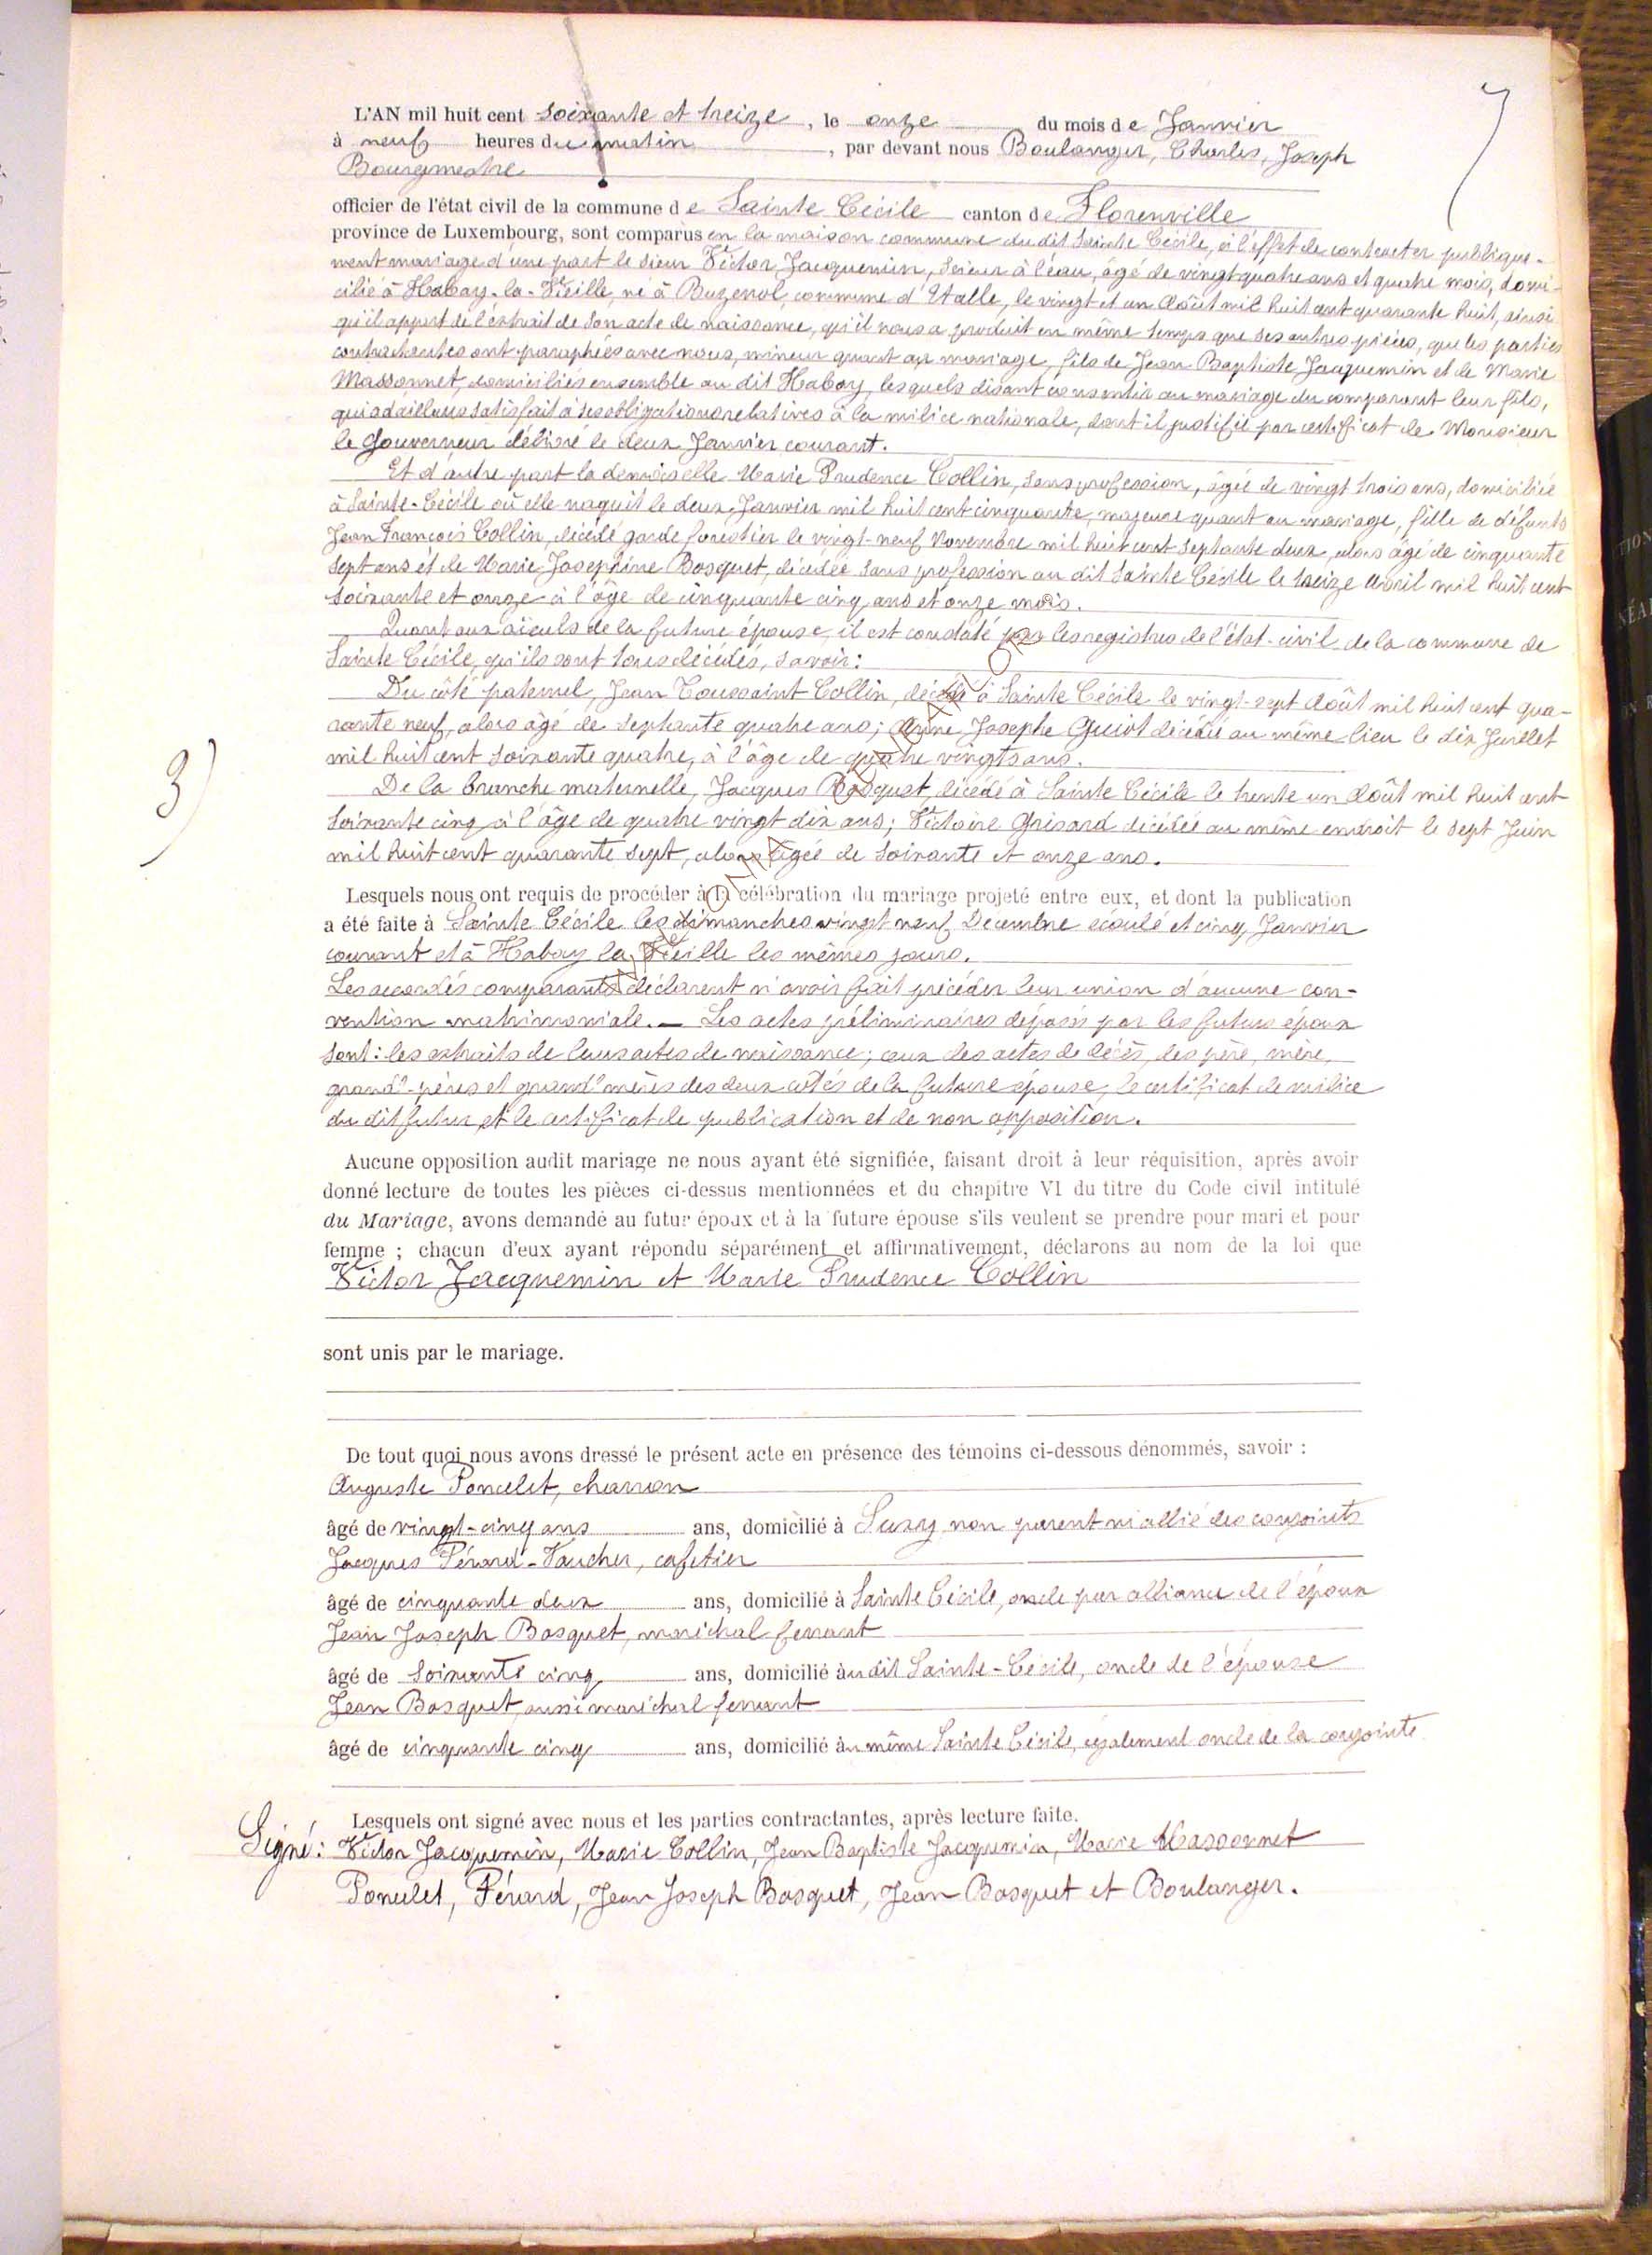 7
L'AN mil huit cent soixante et treize, le onze du mois de Janvier
à neuf heures du matin, par devant nous Boulanger, Charles, Joseph
Bourgmestre
officier de l'état civil de la commune de Sainte Cécile canton de Florenville
province de Luxembourg, sont comparus en la maison commune du dit Sainte Cécile, à l'effet de contracter publique-
ment mariage d'une part le sieur Victor Jacquemin, scieur à l'eau, âgé de vingt quatre ans et quatre mois, domi-
cilié à Habay-la-Vieille, né à Buzenol, commune d'Etalle, le vingt et un Août mil huit cent quarante huit, ainsi
qu'il appert de l'extrait de son acte de naissance, qu'il nous a produit en même temps que ses autres pièces, que les parties
contractantes ont paraphées avec nous, mineur quant au mariage, fils de Jean Baptiste Jacquemin et de Marie
Massonnet, domiciliés ensemble au dit Habay, lesquels disant consentir au mariage du comparant leur fils,
qui a d'ailleurs satisfait à ses obligations relatives à la milice nationale, dont il justifie par certificat de Monsieur
le Gouverneur délivré le deux Janvier courant.
Et d'autre part la demoiselle Marie Prudence Collin, sans profession, âgée de vingt trois ans, domiciliée
à Sainte-Cécile où elle naquit le deux Janvier mil huit cent cinquante, majeure quant au mariage, fille de défunts
Jean François Collin, décédé garde forestier le vingt-neuf Novembre mil huit cent septante deux, alors âgé de cinquante
sept ans et de Marie Joséphine Bosquet, décédée sans profession au dit Sainte Cécile le treize Avril mil huit cent
soixante et onze à l'âge de cinquante cinq ans et onze mois.
Quant aux aïeuls de la future épouse, il est constaté par les registres de l'état-civil de la commune de
Sainte Cécile, qu'ils sont tous décédés, savoir:
Du côté paternel, Jean Toussaint Collin, décédé à Sainte Cécile le vingt-sept Août mil huit cent qua-
rante neuf, alors âgé de septante quatre ans; Anne Josephe Guiot décédée au même lieu le dix Juillet
mil huit cent soixante quatre, à l'âge de quatre vingts ans.
3)
De la branche maternelle, Jacques Bosquet, décédé à Sainte Cécile le trente un Août mil huit cent
soixante cinq à l'âge de quatre vingt dix ans; Victoire Grisard décédée au même endroit le sept Juin
mil huit cent quarante sept, alors âgée de soixante et onze ans.
Lesquels nous ont requis de procéder à la célébration du mariage projeté entre eux, et dont la publication
a été faite à Sainte Cécile les dimanches vingt neuf Décembre écoulé et cinq Janvier
courant et à Habay la Vieille les mêmes jours.
Les accordés comparants déclarent n'avoir fait précéder leur union d'aucune con-
vention matrimoniale. — Les actes préliminaires déposés par les futurs époux
sont: les extraits de leurs actes de naissance; ceux des actes de décès, des père, mère,
grands-pères et grands mères des deux côtés de la future épouse, le certificat de milice
du dit futur, et le certificat de publication et de non opposition.
Aucune opposition audit mariage ne nous ayant été signifiée, faisant droit à leur réquisition, après avoir
donné lecture de toutes les pièces ci-dessus mentionnées et du chapitre VI du titre du Code civil intitulé
du Mariage, avons demandé au futur époux et à la future épouse s'ils veulent se prendre pour mari et pour
femme ; chacun d'eux ayant répondu séparément et affirmativement, déclarons au nom de la loi que
Victor Jacquemin et Marie Prudence Collin
sont unis par le mariage.
De tout quoi nous avons dressé le présent acte en présence des témoins ci-dessous dénommés, savoir :
Auguste Poncelet, charron
âgé de vingt-cinq ans ans, domicilié à Suxy, non parent ni allié des conjoints
Jacques Pérard-Vaucher, cafetier
âgé de cinquante deux ans, domicilié à Sainte Cécile, oncle par alliance de l'époux
Jean Joseph Bosquet, maréchal ferrant
âgé de soixante cinq ans, domicilié au dit Sainte-Cécile, oncle de l'épouse
Jean Bosquet, aussi maréchal ferrant
âgé de cinquante cinq ans, domicilié au même Sainte Cécile, également oncle de la conjointe
Lesquels ont signé avec nous et les parties contractantes, après lecture faite.
Signé: Victor Jacquemin, Marie Collin, Jean Baptiste Jacquemin, Marie Massonnet
Poncelet, Pérard, Jean Joseph Bosquet, Jean Bosquet et Boulanger.